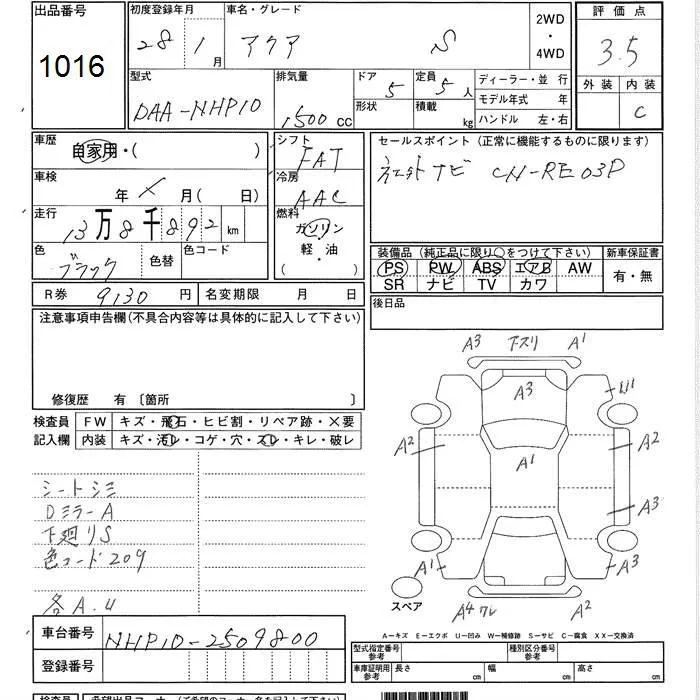 出品番号
1016
初度登録年月
28 1月
車名・グレード
アクア S
2WD
・
4WD
評価点
3.5
外装 内装
C
型式
DAA-NHP10
排気量
1500 CC
ドア
5
形状
定員
5人
積載
kg
ディーラー・並行
モデル年式 年
ハンドル 左・右
車歴
自家用・( )
車検
年 月( 日)
走行
13万8千892 km
色
ブラック
色替
色コード
シフト
FAT
冷房
AAC
燃料
ガソリン
・
軽・油
( )
セールスポイント (正常に機能するものに限ります)
ナビ CN-RE03P
装備品 (純正品に限り○をつけて下さい)
PS PW ABS エアB AW
SR ナビ TV カワ
新車保証書
有・無
R券 9130 円
名変期限 月 日
後日品
注意事項申告欄(不具合内容等は具体的に記入して下さい)
修復歴 有 〔箇所 〕
検査員
記入欄
FW キズ・飛石・ヒビ割・リペア跡・×要
内装 キズ・汚レ・コゲ・穴・スレ・キレ・破レ
シートシミ
DミラーA
下廻りS
色コード209
各A.U
A3 下スリ A1
A3
A2
A1
A2
A3
A1
A3
スペア
A4ワレ A2
A-キズ E-エクボ U-凹み W-補修跡 S-サビ C-腐食 XX-交換済
車台番号
NHP10-2509800
登録番号
型式指定番号
参考
種別区分番号
参考
車庫証明用
参考
長さ
幅
高さ